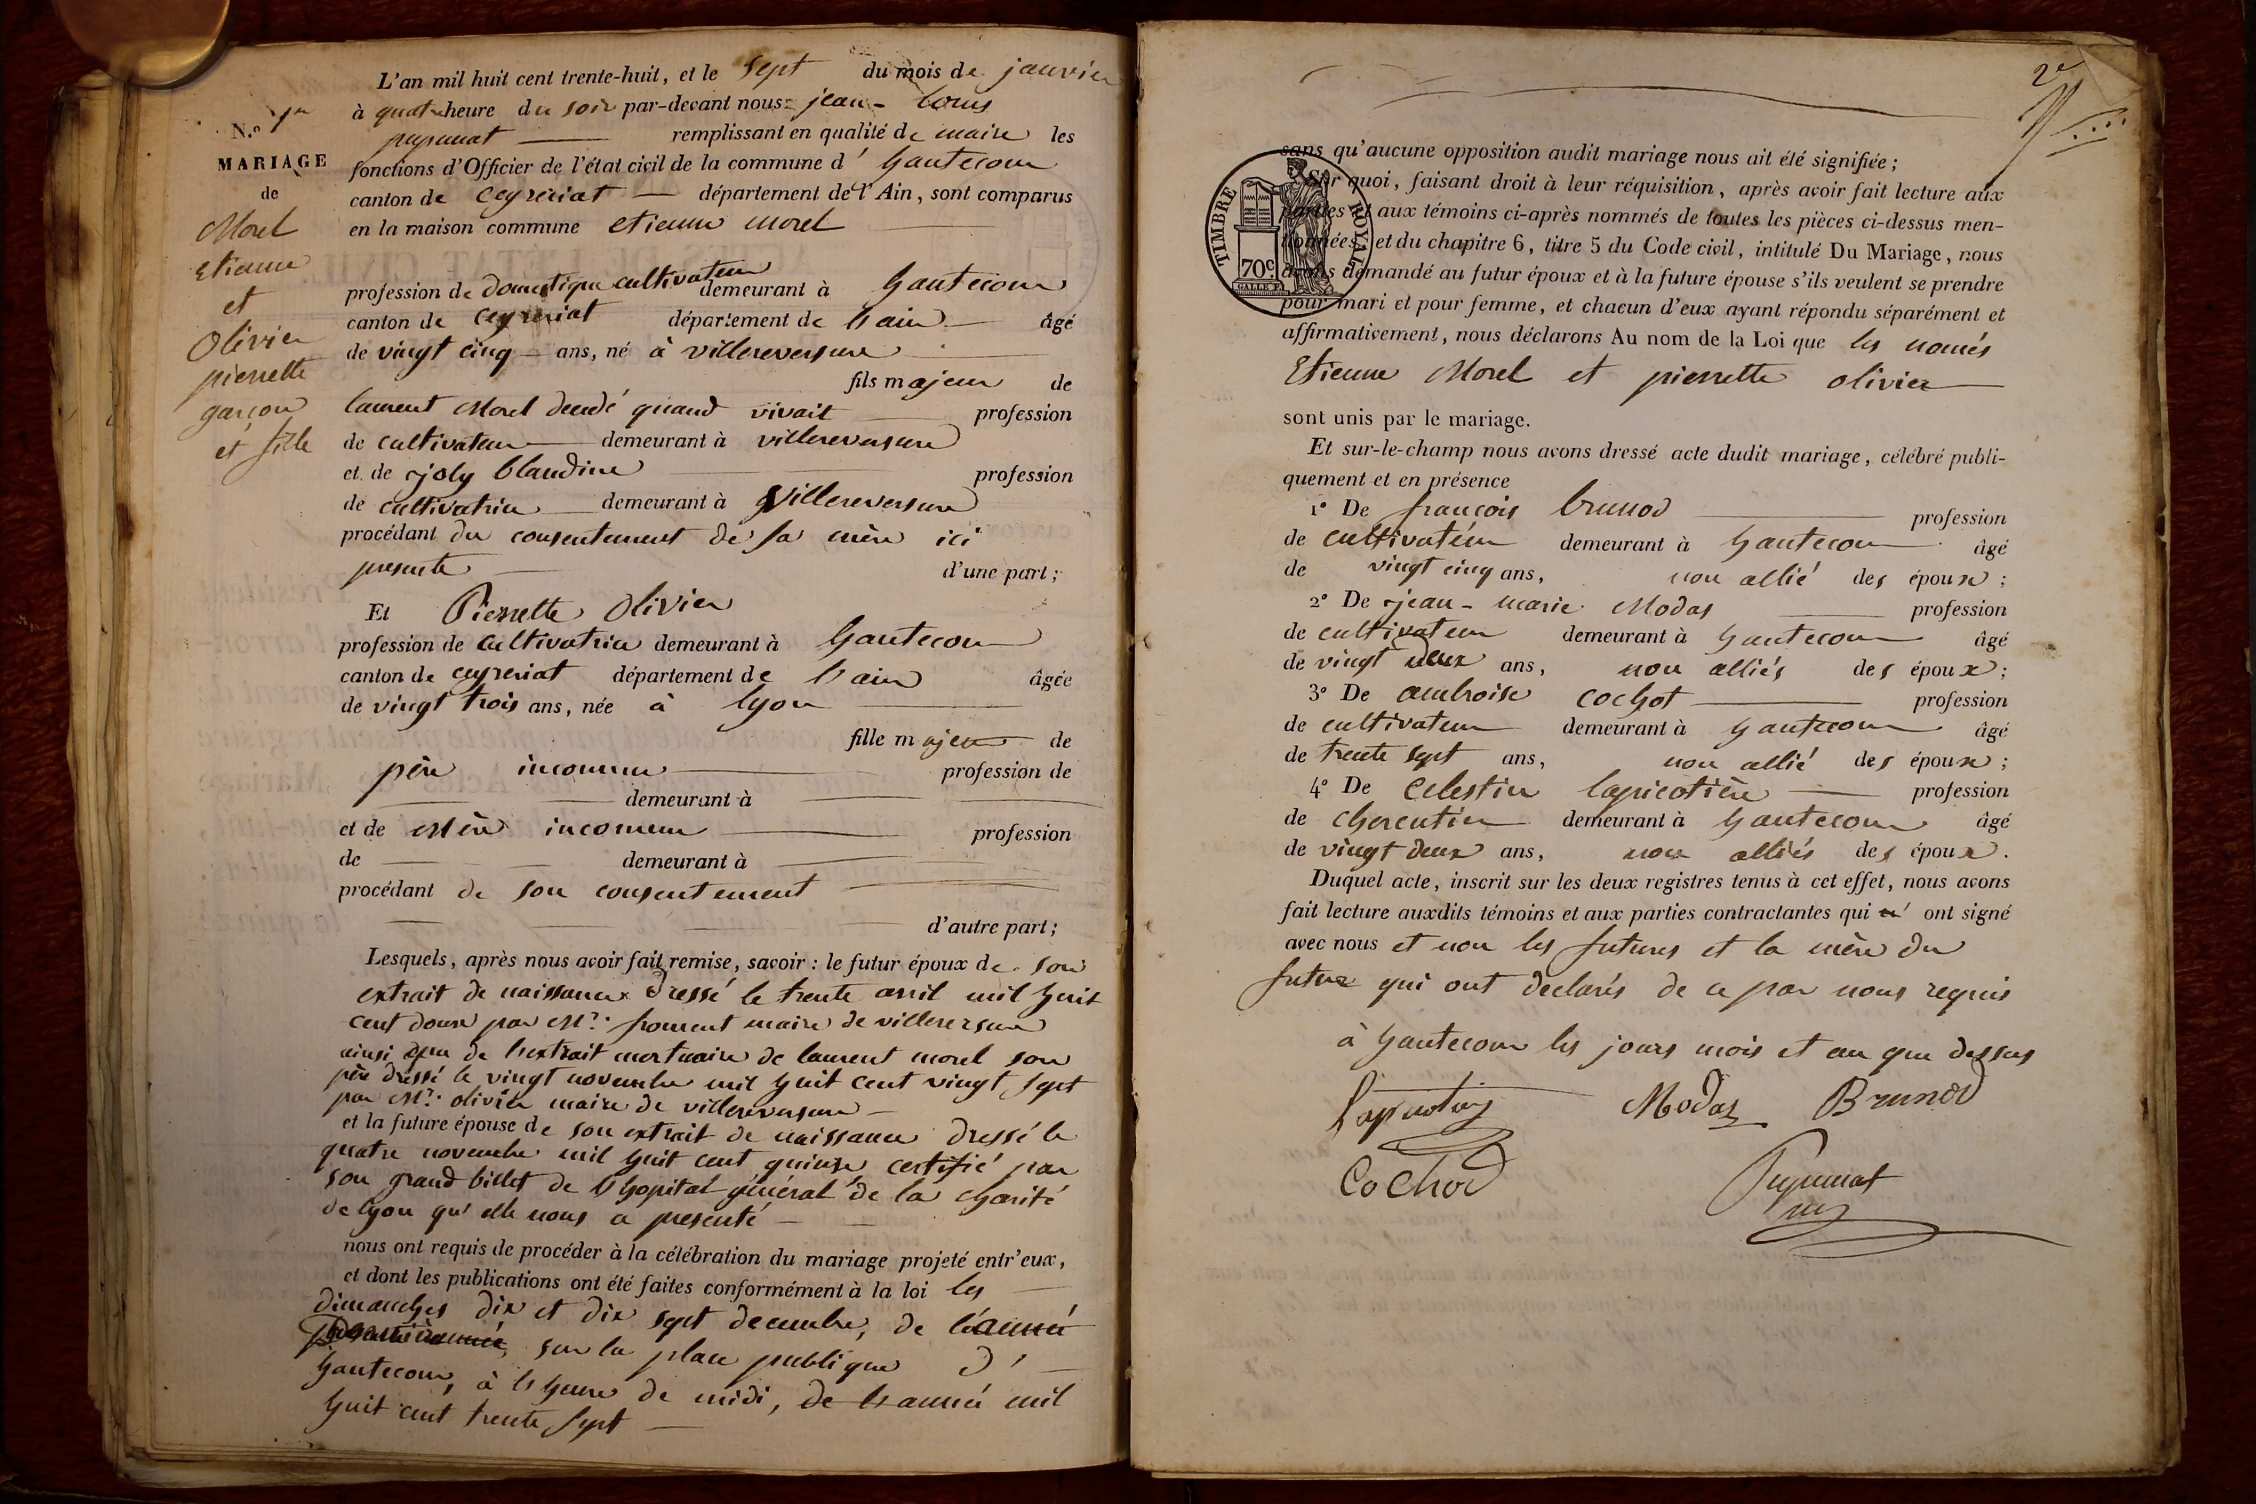 L'an mil huit cent trente-huit, et le sept du mois de janvier
à quatre heure du soir par-devant nous jean-louis
remplissant en qualité de maire les
fonctions d'Officier de l'état civil de la commune d' hautecour
canton de ceyzeriat département de l'Ain, sont comparus
en la maison commune etienne morel
profession de domestique cultivateur demeurant à hautecour
canton de ceyzeriat département de l'ain âgé
de vingt cinq ans, né à villereversure
fils majeur de
laurent Morel decedé quand vivait profession
de cultivateur demeurant à villereversure
et de joly blandine profession
de cultivatrice demeurant à villereversure
procédant du consentement de sa mère ici
presente d'une part;
Et Pierrette Olivier
profession de cultivatrice demeurant à hautecour
canton de ceyzeriat département de l'ain âgée
de vingt trois ans, née à lyon
fille majeure de
père inconnu profession de
demeurant à
et de mère inconnue profession
de demeurant à
procédant de son consentement
d'autre part;
Lesquels, après nous avoir fait remise, savoir : le futur époux de son
extrait de naissance dressé le trente avril mil huit
cent douze par Mr. froment maire de villereversure
ainsi que de l'extrait mortuaire de laurent morel son
père dressé le vingt novembre mil huit cent vingt sept
par Mr. olivier maire de villereversure
et la future épouse de son extrait de naissance dressé le
quatre novembre mil huit cent quinze certifié par
son grand billet de l'hopital général de la charité
de lyon qu'elle nous a presenté
nous ont requis de procéder à la célébration du mariage projeté entr'eux,
et dont les publications ont été faites conformément à la loi les
dimanches dix et dix sept decembre, de l'année
sur la place publique d'
hautecour, à l'heure de midi, de l'année mil
huit cent trente sept
N.° 1er
MARIAGE
de
Morel
Etienne
et
Olivier
pierrette
garçon
et fille
2e
TIMBRE ROYAL
70c.
sans qu'aucune opposition audit mariage nous ait été signifiée;
Sur quoi, faisant droit à leur réquisition, après avoir fait lecture aux
parties et aux témoins ci-après nommés de toutes les pièces ci-dessus men-
tionnées, et du chapitre 6, titre 5 du Code civil, intitulé Du Mariage, nous
avons demandé au futur époux et à la future épouse s'ils veulent se prendre
pour mari et pour femme, et chacun d'eux ayant répondu séparément et
affirmativement, nous déclarons Au nom de la Loi que les només
Etienne Morel et pierrette olivier
sont unis par le mariage.
Et sur-le-champ nous avons dressé acte dudit mariage, célébré publi-
quement et en présence
1° De françois brunod profession
de cultivateur demeurant à hautecour âgé
de vingt cinq ans, non allié des époux;
2° De jean-marie Modas profession
de cultivateur demeurant à hautecour âgé
de vingt deux ans, non alliés des époux;
3° De ambroise cochot profession
de cultivateur demeurant à hautecour âgé
de trente sept ans, non allié des époux;
4° De Celestin lapicotière profession
de charcutier demeurant à hautecour âgé
de vingt deux ans, non alliés des époux.
Duquel acte, inscrit sur les deux registres tenus à cet effet, nous avons
fait lecture auxdits témoins et aux parties contractantes qui n' ont signé
avec nous et non les futures et la mère du
futur qui ont declarés de ce par nous requis
à hautecour les jours mois et an que dessus
Modas Brunod
Cochod